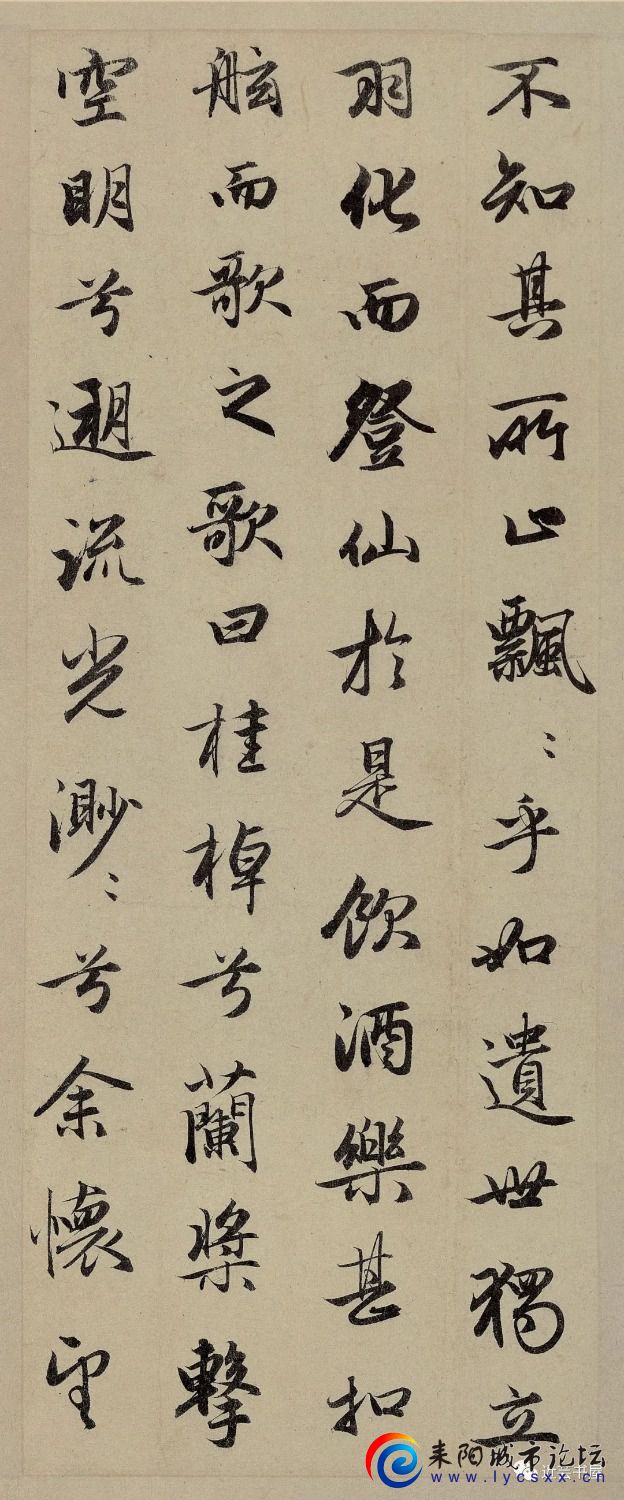 不知其所止飄〻乎如遺世獨立
羽化而登仙於是飲酒樂甚扣
舷而歌之歌曰桂棹兮蘭槳擊
空明兮遡流光渺〻兮余懷望
耒阳城市论坛
www.lycsxx.cn
书屋